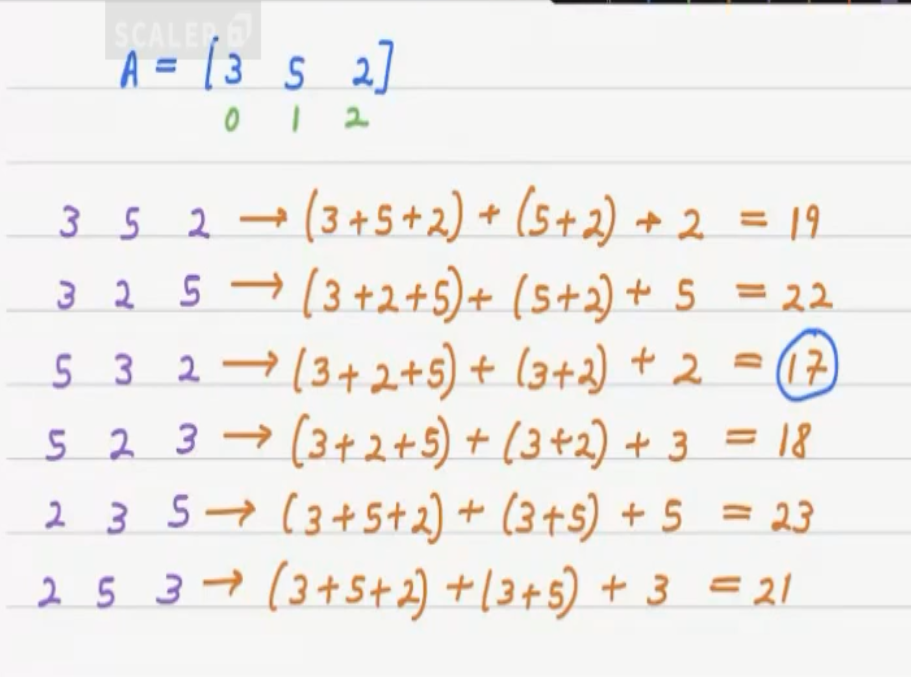 SCALER
A = [3 5 2]
0 1 2
3 5 2 → (3+5+2) + (5+2) + 2 = 19
3 2 5 → (3+2+5) + (5+2) + 5 = 22
5 3 2 → (3+2+5) + (3+2) + 2 = 17
5 2 3 → (3+2+5) + (3+2) + 3 = 18
2 3 5 → (3+5+2) + (3+5) + 5 = 23
2 5 3 → (3+5+2) + (3+5) + 3 = 21